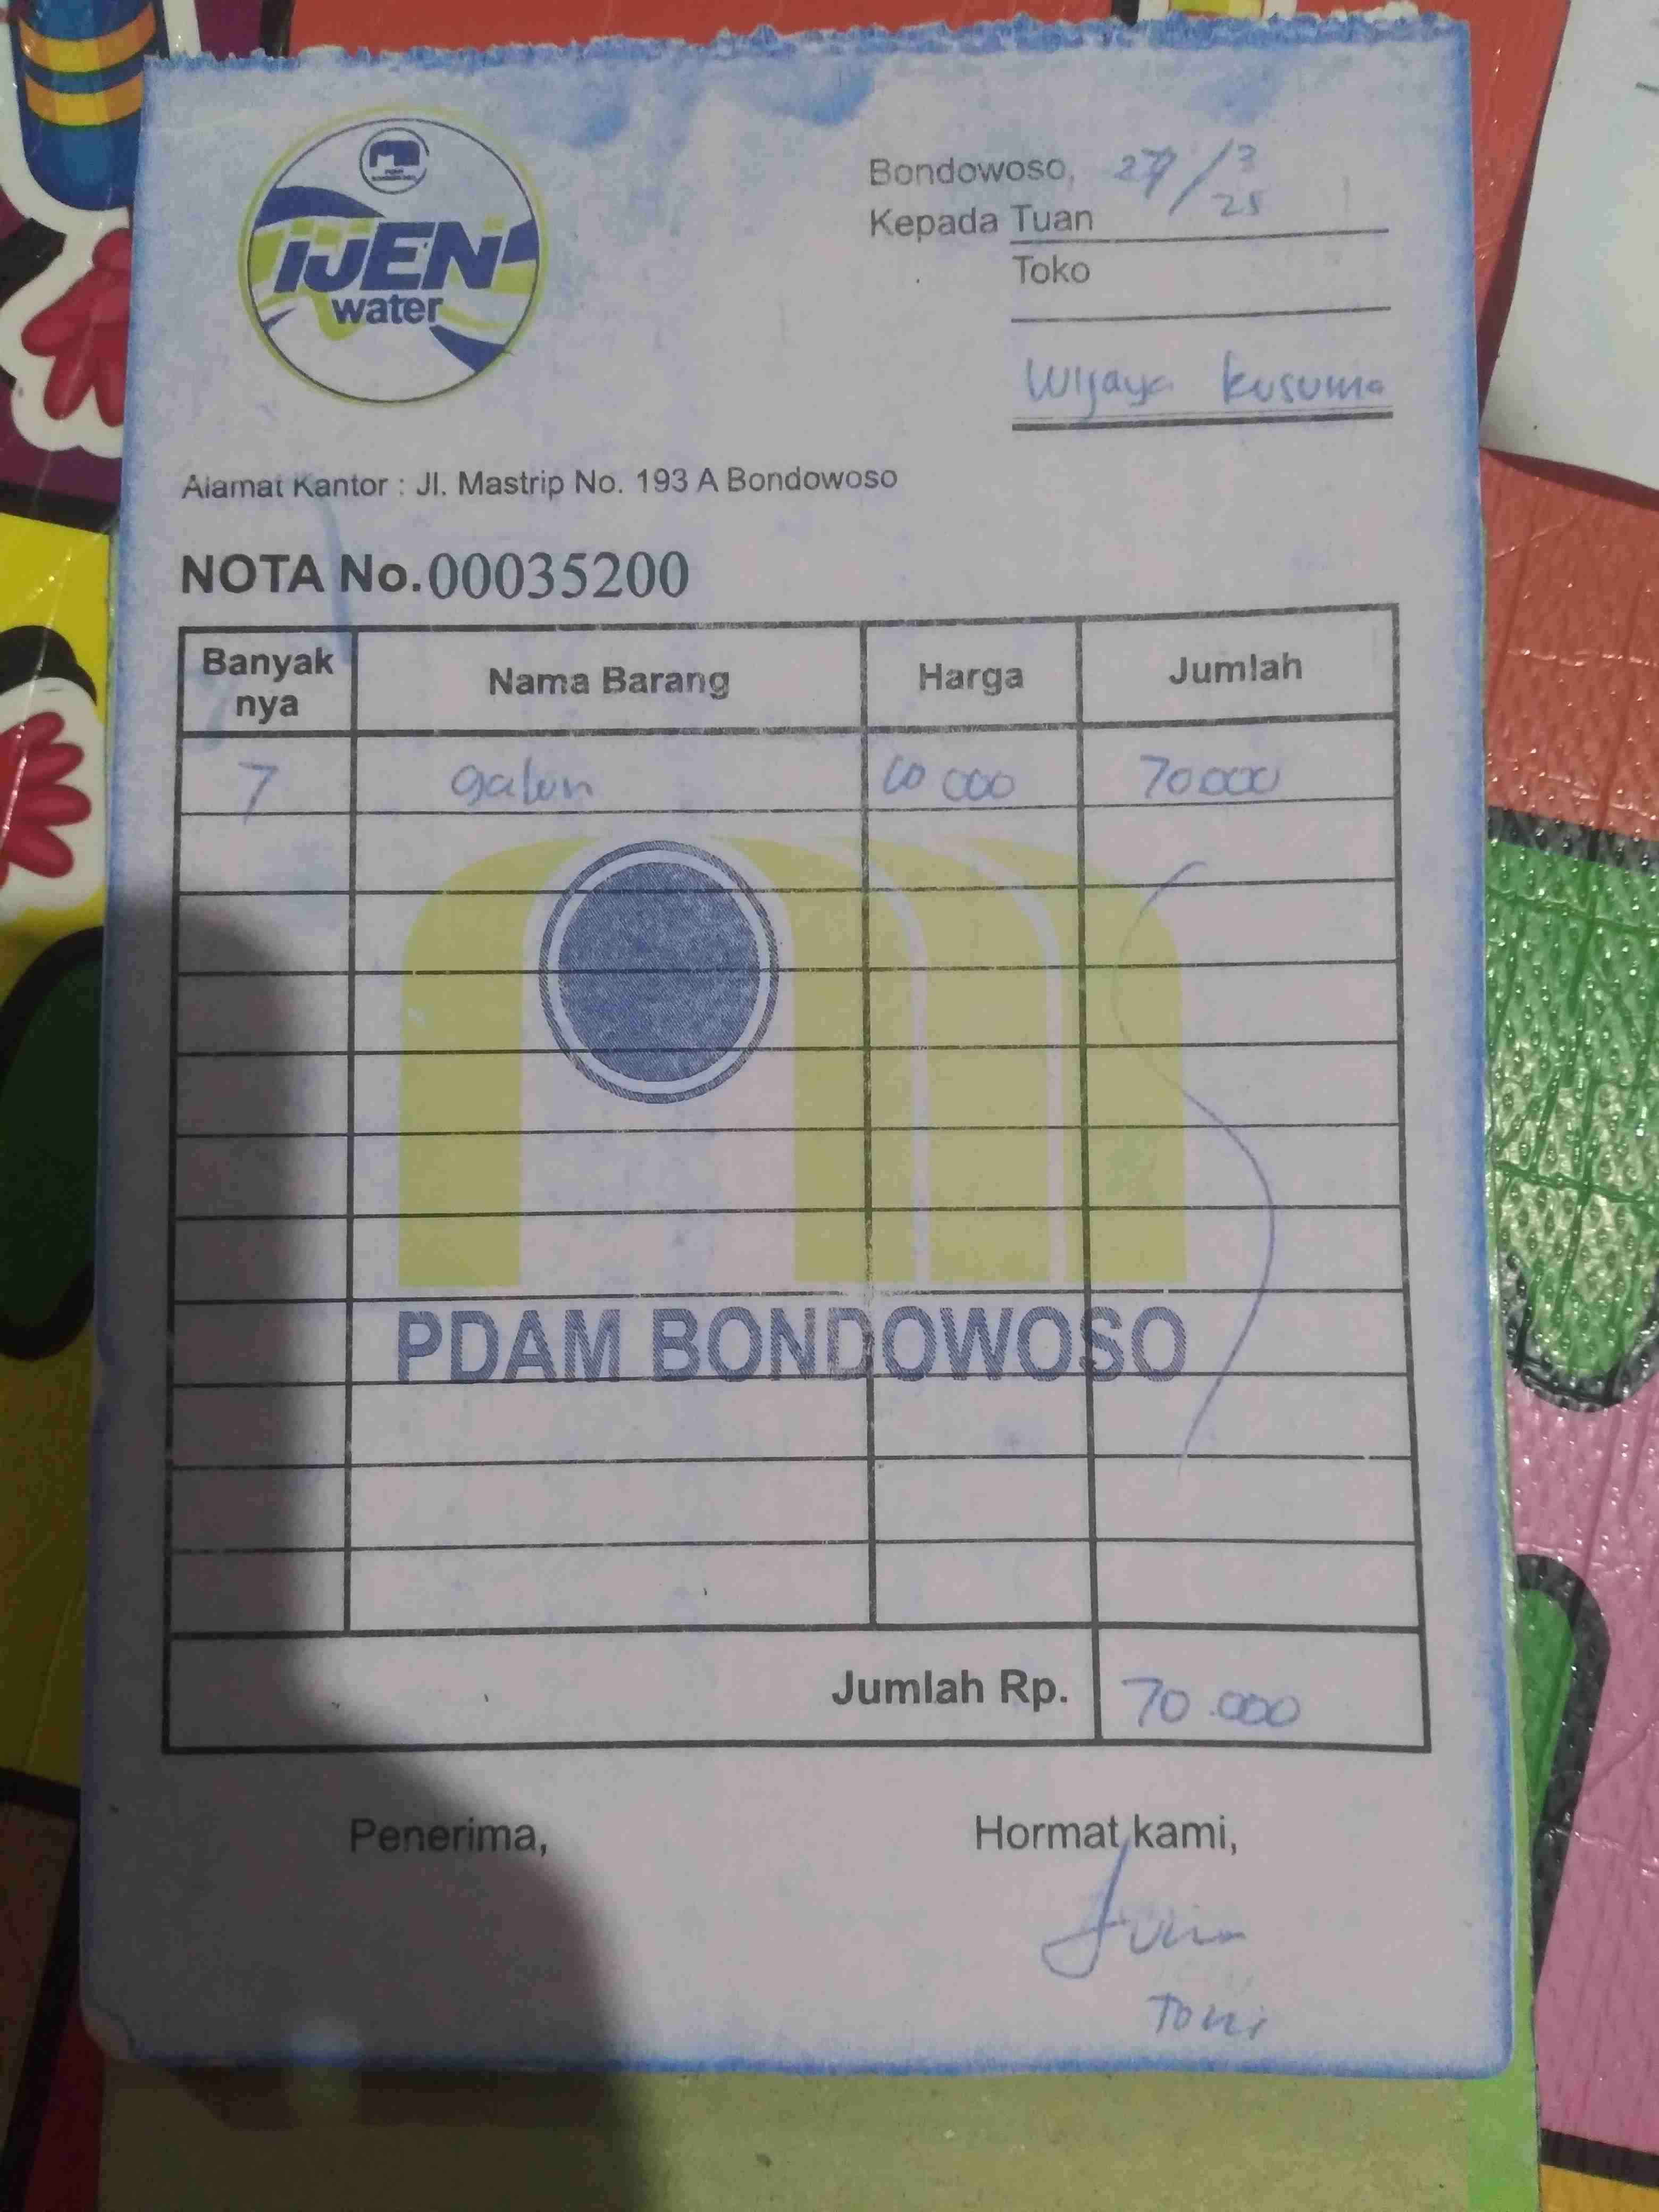 IJEN
water
Bondowoso, 27/3
25
Kepada Tuan
Toko
Wijaya kusuma
Alamat Kantor : Jl. Mastrip No. 193 A Bondowoso
NOTA No. 00035200
Banyak nya Nama Barang Harga Jumlah
7 galon 10 000 70.000
PDAM BONDOWOSO
Jumlah Rp. 70.000
Penerima, Hormat kami,
Toni